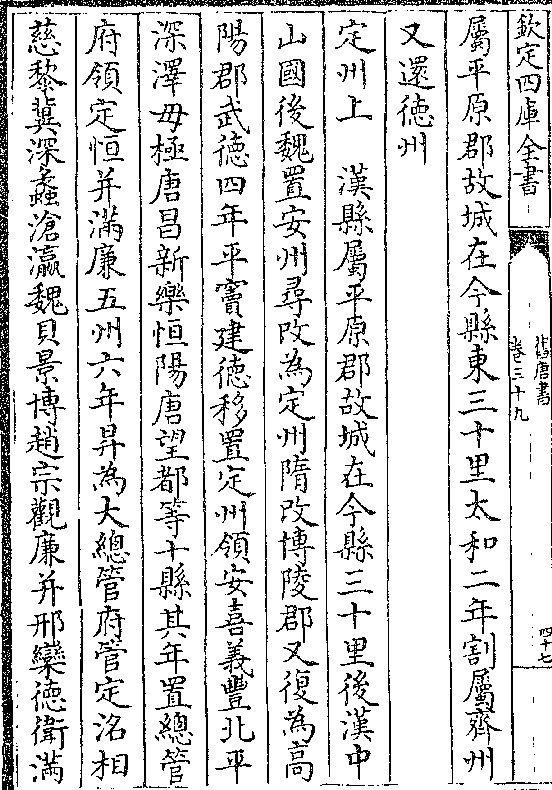 欽定四庫全書
舊唐書
卷三十九
四十七
屬平原郡故城在今縣東三十里太和二年割屬齊州
又還德州
定州上 漢縣屬平原郡故城在今縣三十里後漢中
山國後魏置安州尋改為定州隋改博陵郡又復為高
陽郡武德四年平竇建德移置定州領安喜義豐北平
深澤毋極唐昌新樂恒陽唐望都等十縣其年置總管
府領定恒并滿廉五州六年昇為大總管府管定洺相
慈黎冀深蠡滄瀛魏貝景博趙宗觀廉并邢欒德衛滿